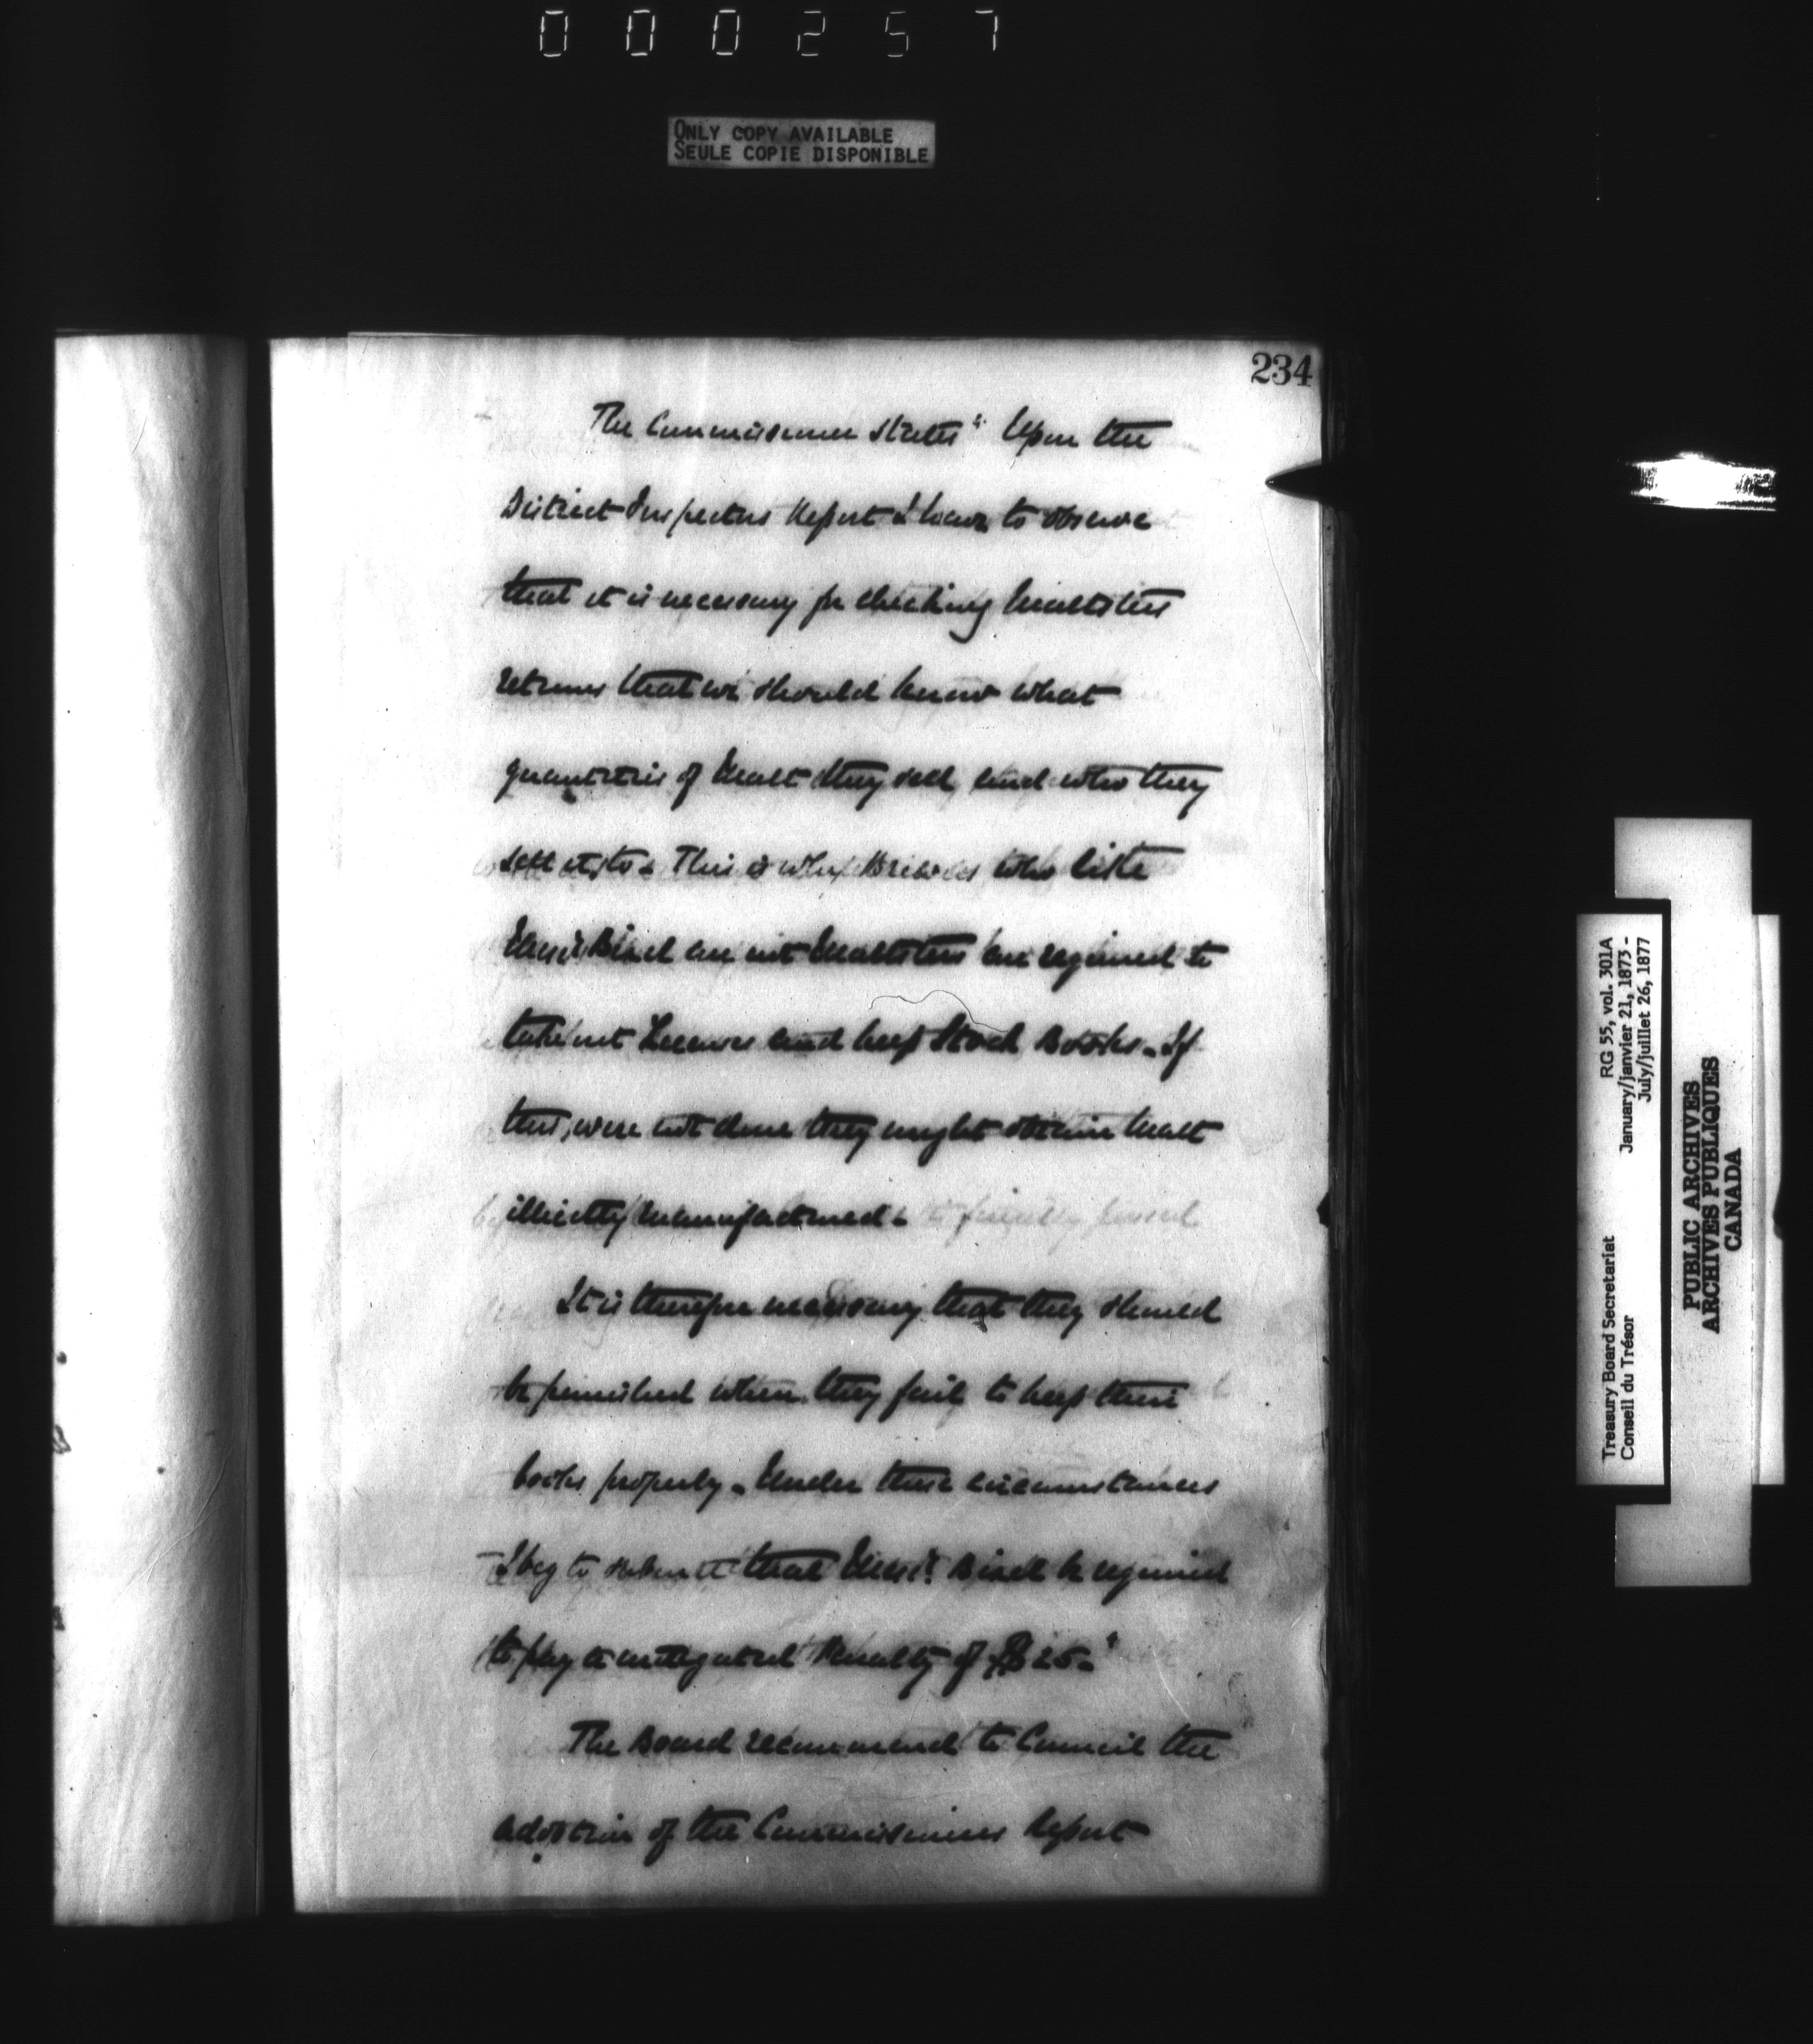 000257
ONLY COPY AVAILABLE
SEULE COPIE DISPONIBLE
234
The Commissioner states "Upon the
District Inspectors Report I have to observe
that it is necessary for checking Maltsters
returns that we should know what
quantities of Malt they sell, and who they
sell it to. This is why Brewers who like
Messrs Bixel are not Maltsters are required to
take out Licenses and keep Stock Books. If
this were not done they might obtain Malt
illicitly manufactured.
It is therefore necessary that they should
be punished when they fail to keep their
books properly. Under these circumstances
I beg to submit that Messrs Bixel be required
to pay a mitigated Penalty of $25."
The Board recommend to Council the
adoption of the Commissioners Report
RG 55, vol. 301A
January/janvier 21, 1873 -
July/juillet 26, 1877
Treasury Board Secretariat
Conseil du Trésor
PUBLIC ARCHIVES
ARCHIVES PUBLIQUES
CANADA